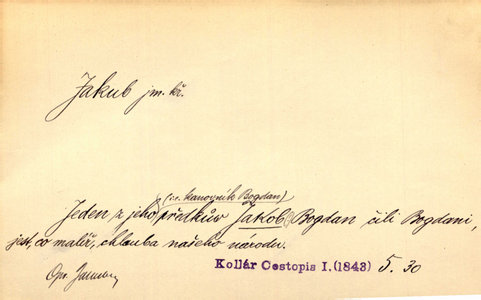 Jakub jm. kř.
(i.e. kanovník Bogdan)
Jeden z jeho předkůw Jakob Bogdan čili Bogdani,
jest, co malíř, chlouba našeho národu.
Kollár Cestopis I. (1843) 5. 30